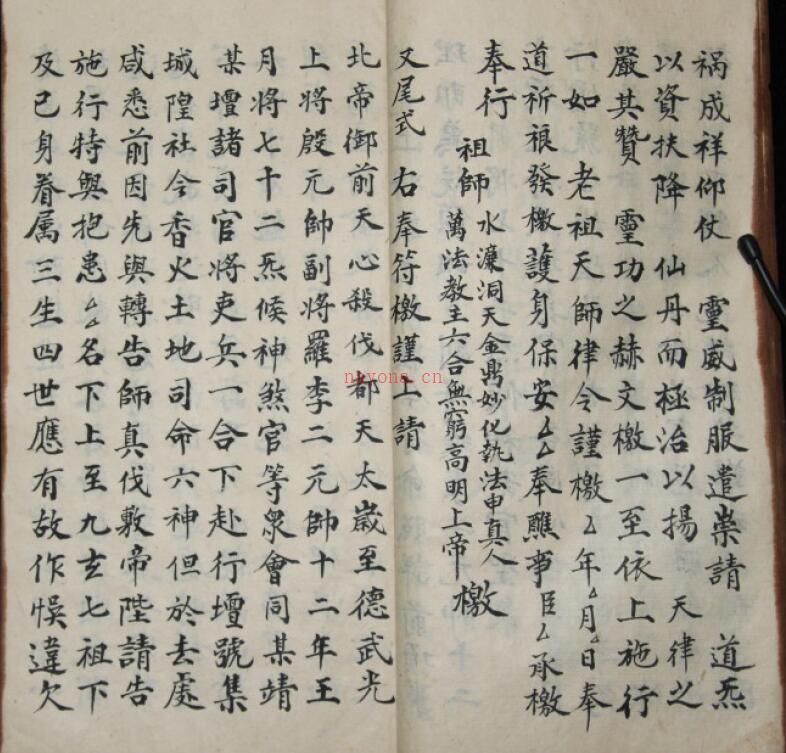 禍成祥仰仗　靈威制服遣祟請　道炁
以資扶降　仙丹而極治以揚　天律之
嚴其贊　靈功之赫文檄一至依上施行
一如　老祖天師律令謹檄厶年厶月厶日奉
道祈禳發檄護身保安厶厶奉醮事臣厶承檄
奉行
祖師水濂洞天金鼎妙化執法申真人
萬法教主六合無窮高明上帝　檄
又尾式　右奉符檄謹上請
北帝御前天心殺伐都天太歲至德武光
上將殷元帥副將羅李二元帥十二年王
月將七十二炁候神煞官等眾會同某靖
某壇諸司官將吏兵一合下赴行壇號集
城隍社令香火土地司命六神但於去處
咸悉前因先與轉告師真伐敷帝陛請告
施行特與抱患厶厶名下上至九玄七祖下
及已身眷属三生四世應有故作悞違欠
nayona.cn